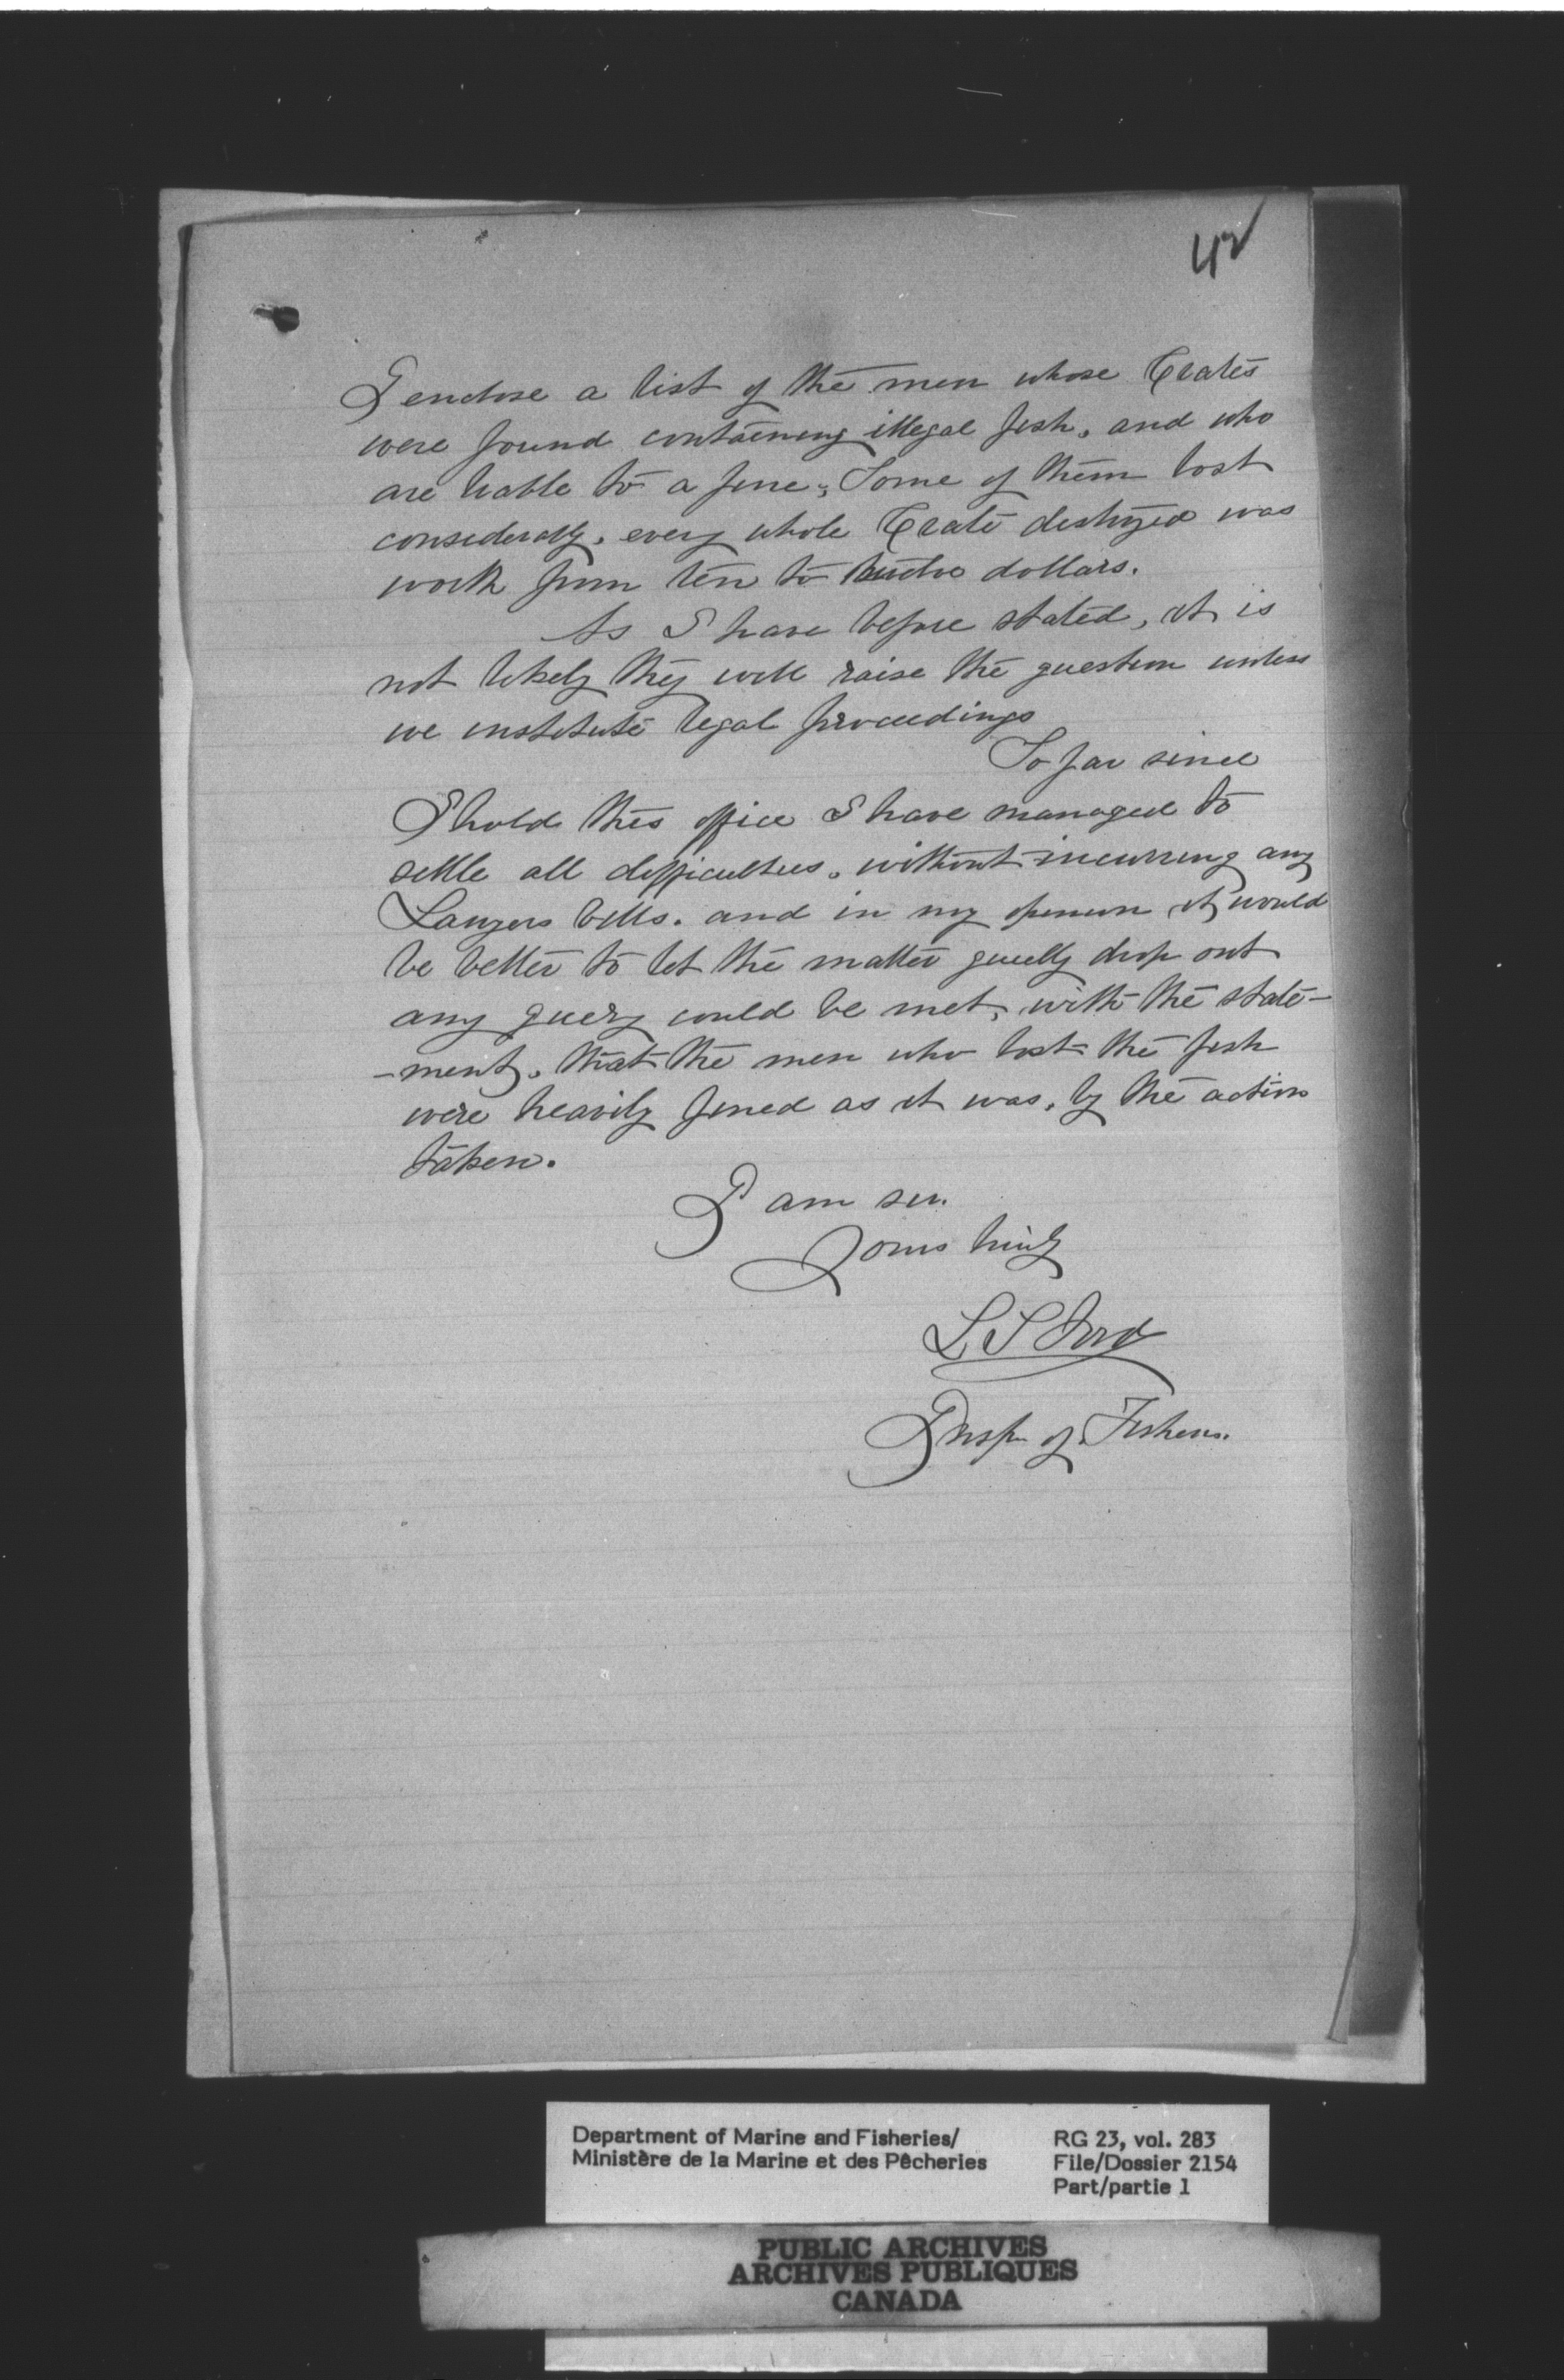 42
I enclose a list of the men whose Crates
were found containing illegal fish, and who
are liable to a fine, Some of them lost
considerably, every whole Crate destroyed was
worth from ten to twelve dollars.
As I have before stated, it is
not likely they will raise the question unless
we institute legal proceedings
So far since
I hold this office I have managed to
settle all difficulties, without incurring any
Lawyers bills. and in my opinion it would
be better to let the matter quietly drop out
any query could be met, with the state-
-ment, that the men who lost the fish
were heavily fined as it was, by the action
taken.
I am sir.
Yours truly
L S Ford
Insp of Fisheries.
Department of Marine and Fisheries/
Ministère de la Marine et des Pêcheries
RG 23, vol. 283
File/Dossier 2154
Part/partie 1
PUBLIC ARCHIVES
ARCHIVES PUBLIQUES
CANADA